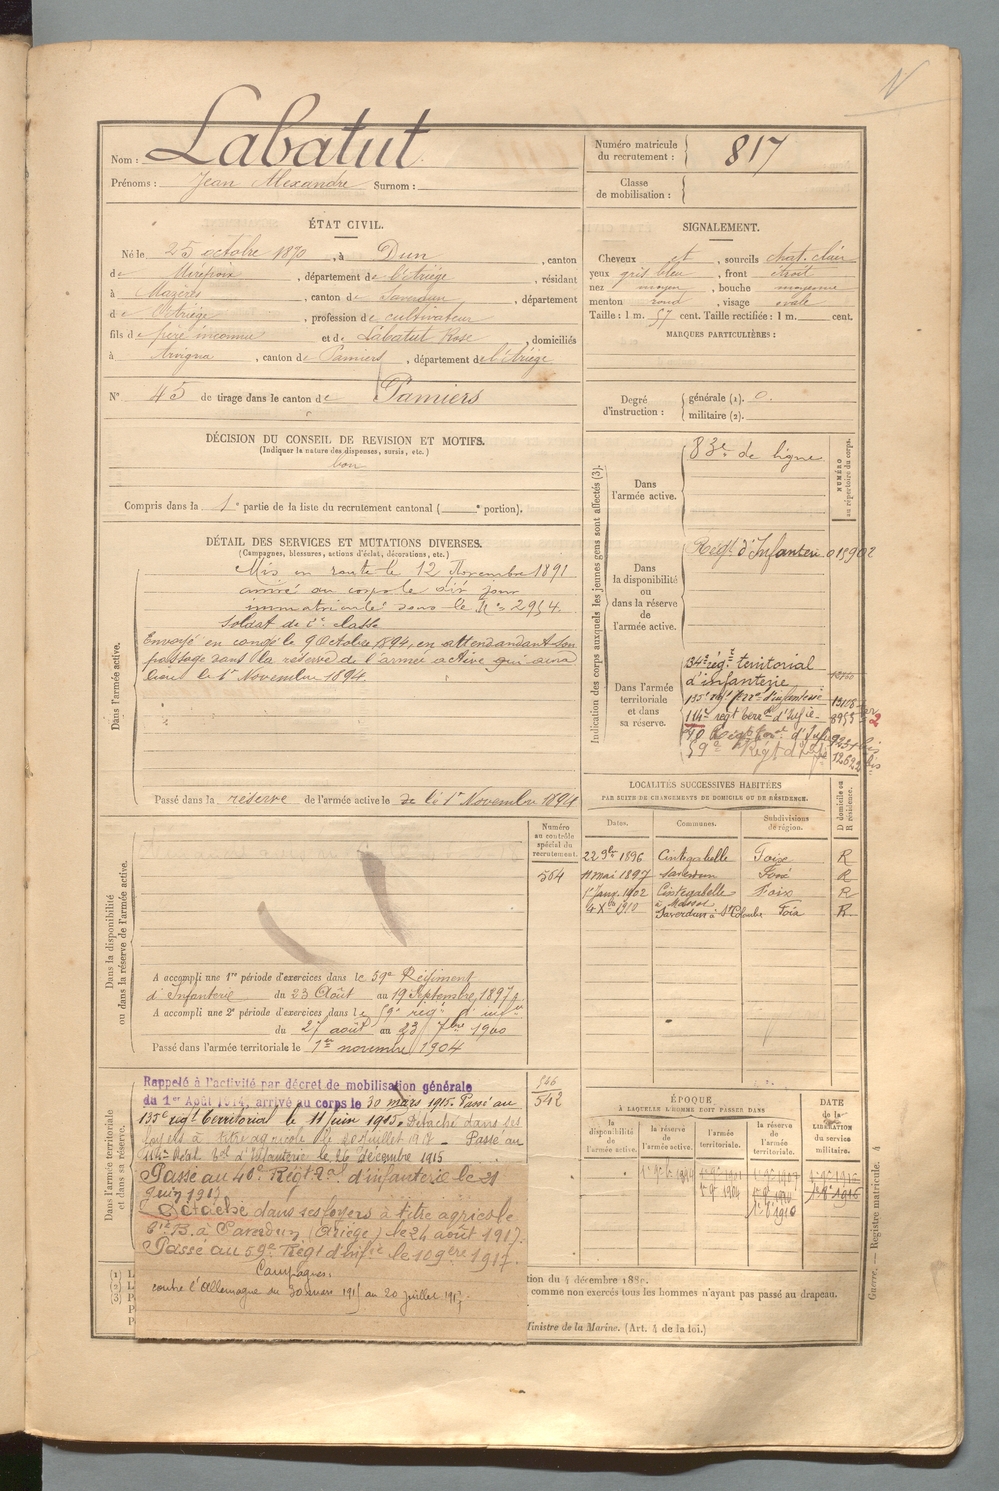 Nom : Labatut
Prénoms : Jean Alexandre Surnom :
Numéro matricule du recrutement : 817
Classe de mobilisation :
ÉTAT CIVIL.
Né le 25 octobre 1870, à Dun, canton
de Mirepoix, département de l'Ariège, résidant
à Mazères, canton de Saverdun, département
de l'Ariège, profession de cultivateur
fils de père inconnu et de Labatut Rose, domiciliés
à Arvigna, canton de Pamiers, département de l'Ariège
N° 45 de tirage dans le canton de Pamiers
SIGNALEMENT.
Cheveux et, sourcils chat. clair
yeux gris bleu, front étroit
nez moyen, bouche moyenne
menton rond, visage ovale
Taille : 1 m. 57 cent. Taille rectifiée : 1 m. cent.
MARQUES PARTICULIÈRES :
Degré d'instruction : générale (1). 0.
militaire (2).
DÉCISION DU CONSEIL DE REVISION ET MOTIFS.
(Indiquer la nature des dispenses, sursis, etc.)
bon
Compris dans la 1e partie de la liste du recrutement cantonal ( e portion).
DÉTAIL DES SERVICES ET MUTATIONS DIVERSES.
(Campagnes, blessures, actions d'éclat, décorations, etc.)
Dans l'armée active.
Mis en route le 12 Novembre 1891
arrivé au corps le dit jour
immatriculé sous le N° 2954.
Soldat de 2e classe
Envoyé en congé le 9 Octobre 1894, en attendandant son
passage dans la réserve de l'armée active qui aura
lieu le 1r Novembre 1894.
Passé dans la réserve de l'armée active le 1r Novembre 1894
Indication des corps auxquels les jeunes gens sont affectés (3).
NUMÉRO au répertoire du corps.
Dans l'armée active.
83e de ligne
Dans la disponibilité ou dans la réserve de l'armée active.
Régt d'Infanterie 015902
Dans l'armée territoriale et dans sa réserve.
34e rég. territorial
d'infanterie
135e régt terr. d'infanterie
114e régt terr. d'Infie
40 Régt d'Inf
59e Régt d'Infie
LOCALITÉS SUCCESSIVES HABITÉES
PAR SUITE DE CHANGEMENTS DE DOMICILE OU DE RÉSIDENCE.
D domicile ou R résidence.
Dates. Communes. Subdivisions de région.
22 9bre 1896 Cintegabelle Foix R
11 mai 1897 Saverdun Foix R
1r Janv. 1902 Cintegabelle Foix R
4 Xbre 1910 Saverdun à Ste Colombe Foix R
Numéro au contrôle spécial du recrutement.
564
Dans la disponibilité ou dans la réserve de l'armée active.
A accompli une 1re période d'exercices dans le 59e Régiment
d'Infanterie du 23 Août au 19 Septembre 1897.
A accompli une 2e période d'exercices dans le 59e régt d'infie
du 27 août au 23 7bre 1900
Passé dans l'armée territoriale le 1er novembre 1904
Dans l'armée territoriale et dans sa réserve.
566
542
Rappelé à l'activité par décret de mobilisation générale
du 1er Août 1914, arrivé au corps le 30 mars 1915. Passé au
135e régt territorial le 11 juin 1915. Détaché dans ses
foyers à titre agricole le 20 Juillet 1917 – Passé au
114e Régt Tal d'Infanterie le 26 décembre 1915
Passé au 40e Régt Ral d'infanterie le 21
juin 1917
Détaché dans ses foyers à titre agricole
Cie B. à Saverdun (Ariège) le 24 août 1917.
Passé au 59e Régt d'Infie le 10 9bre 1917.
Campagnes.
contre l'Allemagne du 30 mars 1915 au 20 juillet 1917.
ÉPOQUE
À LAQUELLE L'HOMME DOIT PASSER DANS
la disponibilité de l'armée active.
la réserve de l'armée active.
l'armée territoriale.
la réserve de l'armée territoriale.
DATE de la LIBÉRATION du service militaire.
1r 9bre 1894
1r 9bre 1904
1r 9bre 1910
1r 9bre 1916
tion du 4 décembre 188
comme non exercés tous les hommes n'ayant pas passé au drapeau.
Ministre de la Marine. (Art. 4 de la loi.)
Guerre. — Registre matricule. 4